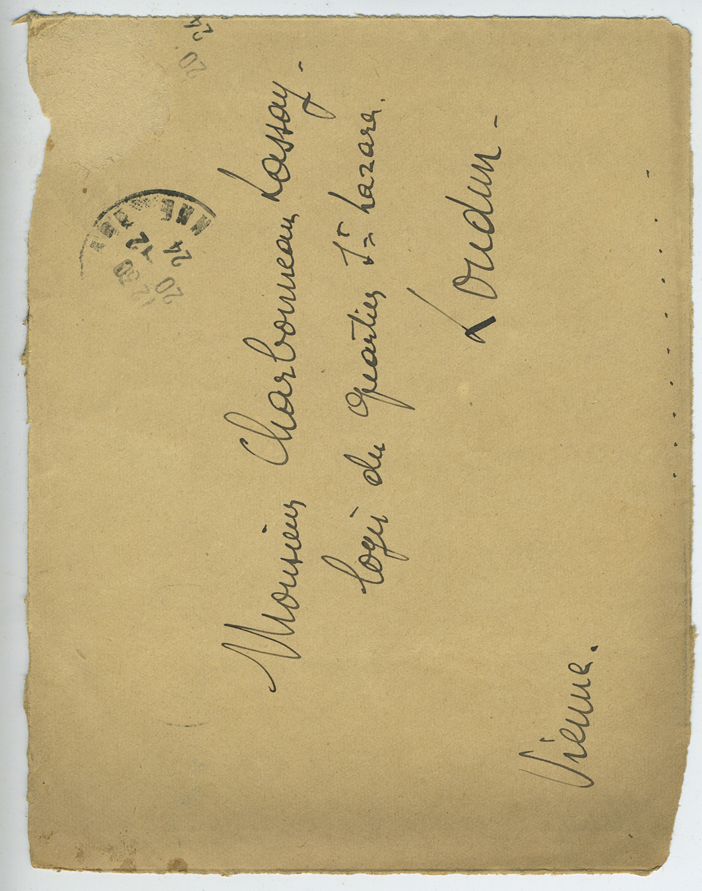 Monsieur Charbonneau Lassay-
logis du Quartier St Lazare.
Loudun-
Vienne.
12 30
20 12
24
20
24